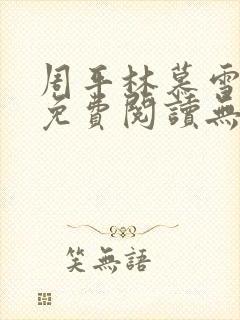 周平林慕雪
免費閱讀無
笑無語